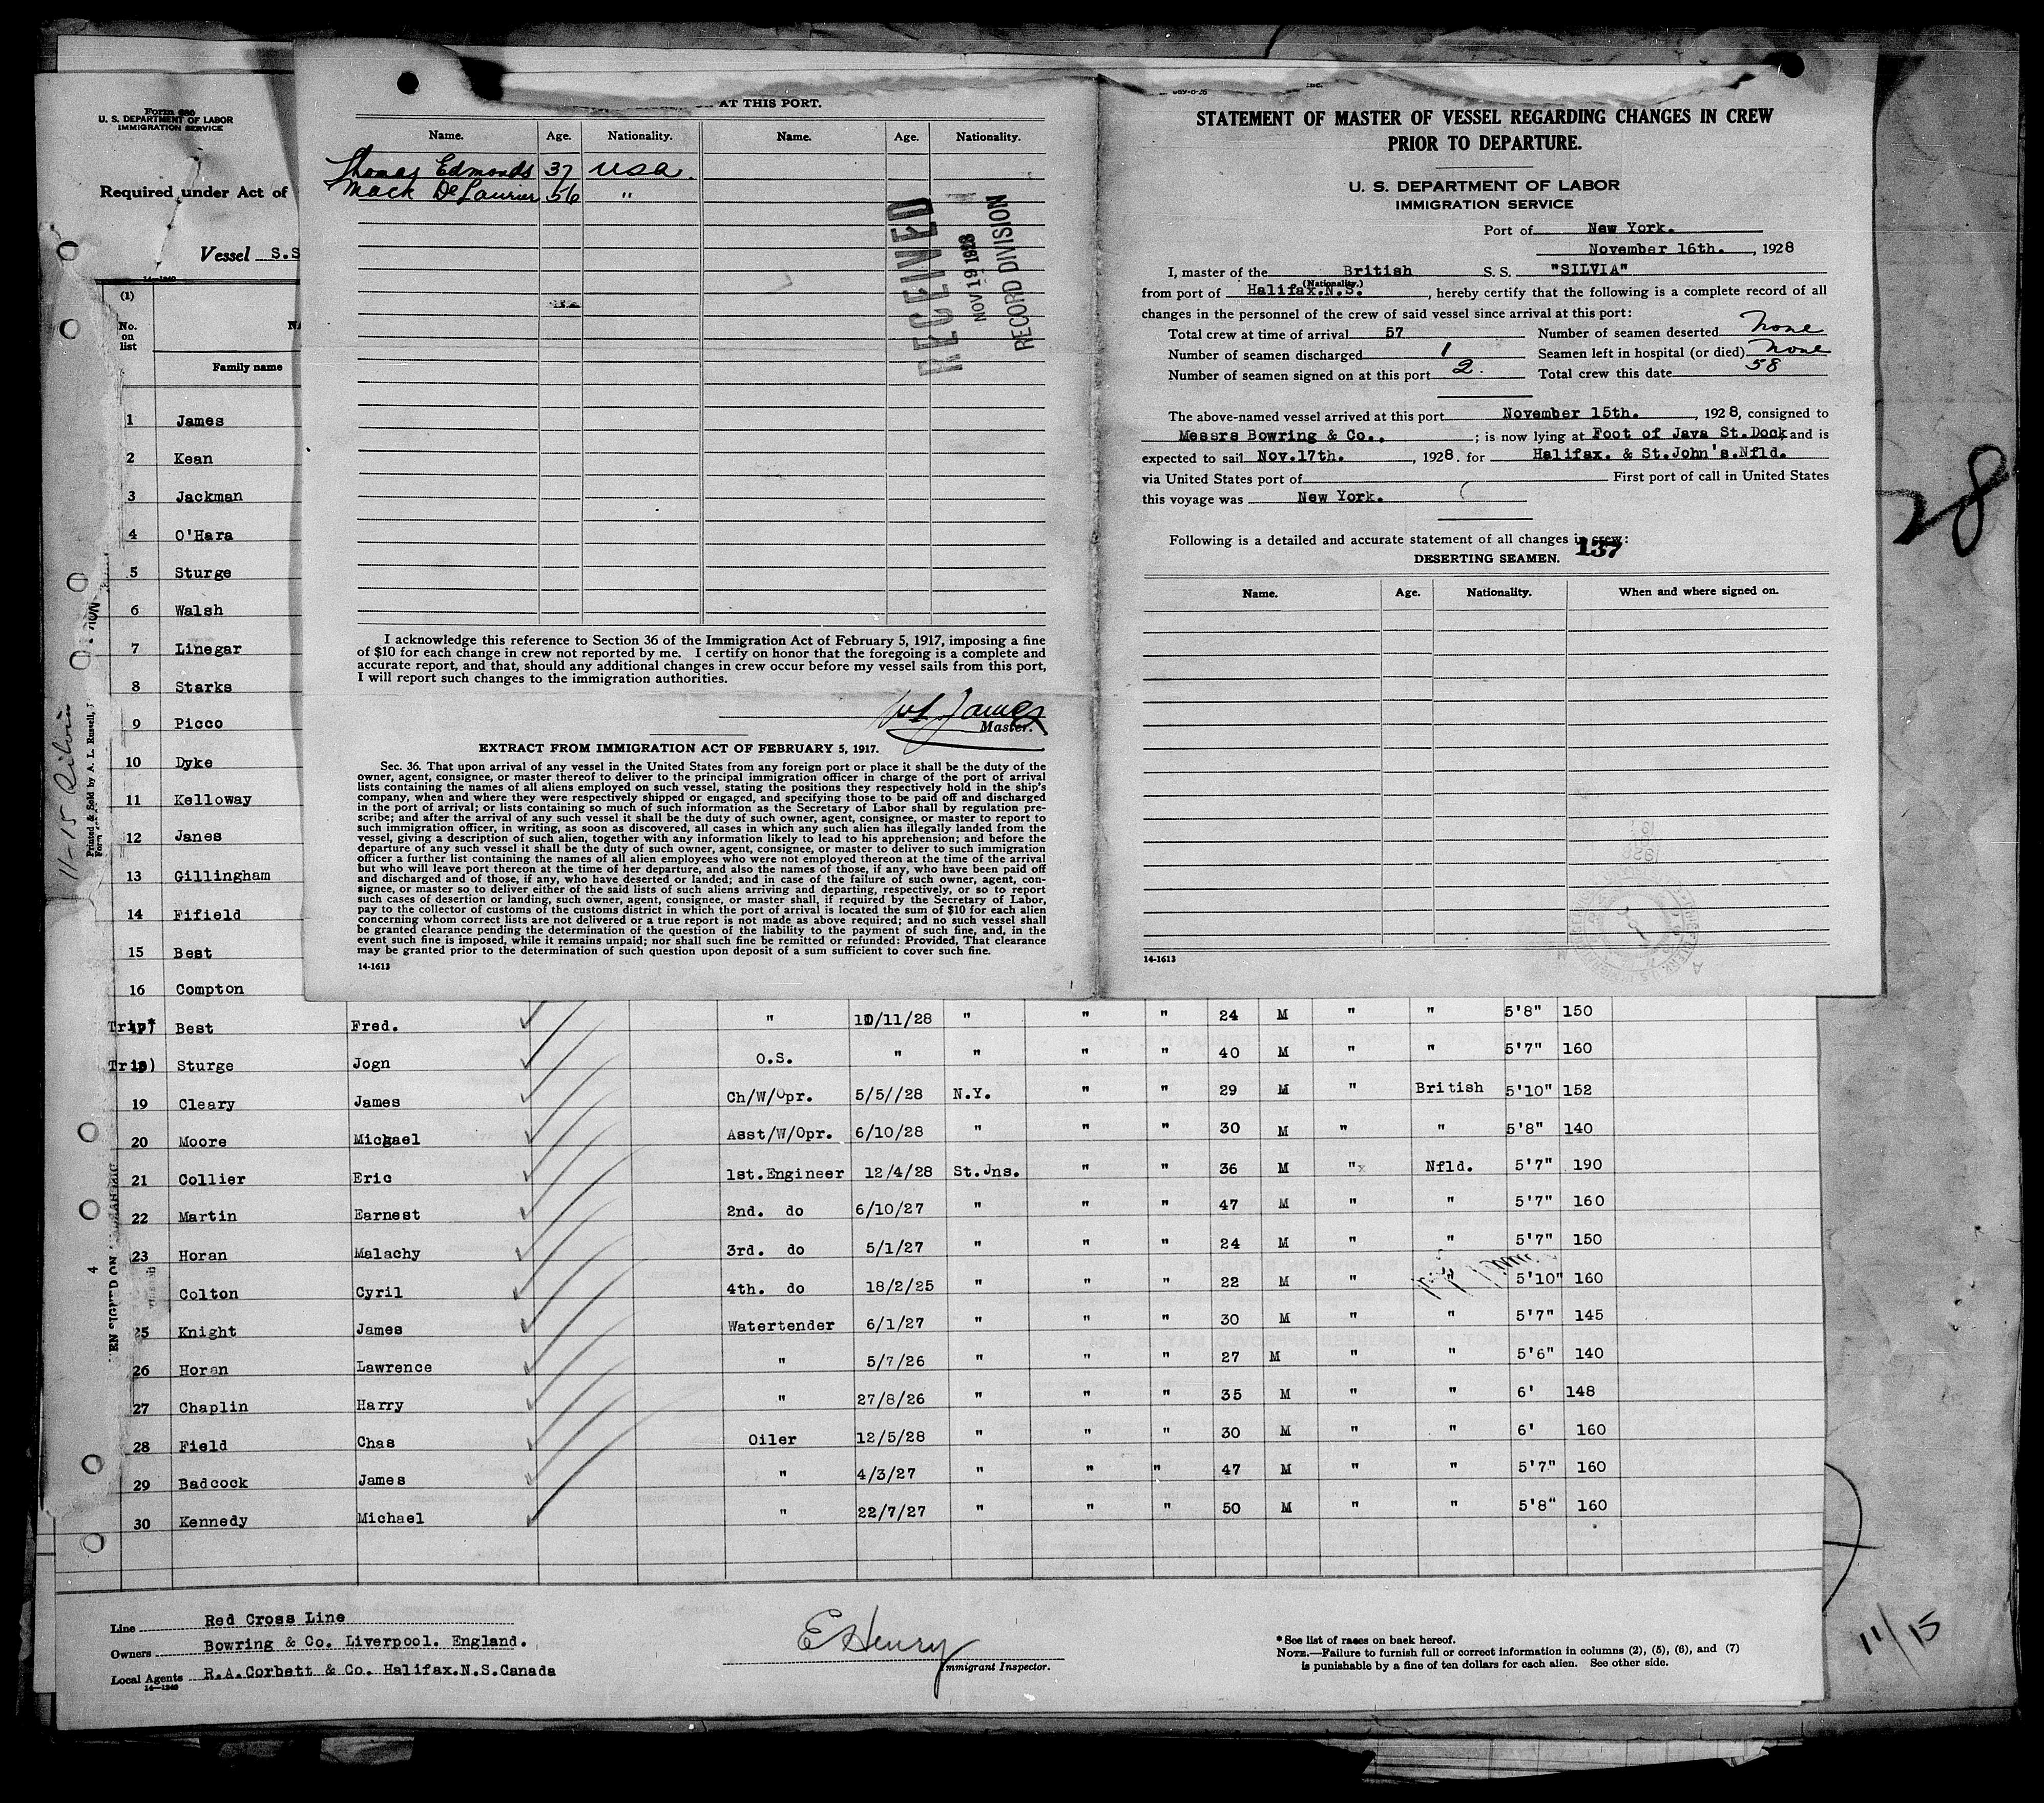 Form 680
U. S. DEPARTMENT OF LABOR
IMMIGRATION SERVICE
Required under Act of
Vessel S.S
14—1240
(1)
No. on list
Family name
1 James
2 Kean
3 Jackman
4 O'Hara
5 Sturge
6 Walsh
7 Linegar
8 Starks
9 Picco
10 Dyke
11 Kelloway
12 Janes
13 Gillingham
14 Fifield
15 Best
16 Compton
Printed & Sold by A. L. Russell,
11-15
AT THIS PORT.
Name. Age. Nationality. Name. Age. Nationality.
Thomas Edmonds 37 USA.
Mack DeLaurier 56 "
RECEIVED
NOV 19 1928
RECORD DIVISION
I acknowledge this reference to Section 36 of the Immigration Act of February 5, 1917, imposing a fine
of $10 for each change in crew not reported by me. I certify on honor that the foregoing is a complete and
accurate report, and that, should any additional changes in crew occur before my vessel sails from this port,
I will report such changes to the immigration authorities.
James
Master.
EXTRACT FROM IMMIGRATION ACT OF FEBRUARY 5, 1917.
Sec. 36. That upon arrival of any vessel in the United States from any foreign port or place it shall be the duty of the
owner, agent, consignee, or master thereof to deliver to the principal immigration officer in charge of the port of arrival
lists containing the names of all aliens employed on such vessel, stating the positions they respectively hold in the ship's
company, when and where they were respectively shipped or engaged, and specifying those to be paid off and discharged
in the port of arrival; or lists containing so much of such information as the Secretary of Labor shall by regulation pre-
scribe; and after the arrival of any such vessel it shall be the duty of such owner, agent, consignee, or master to report to
such immigration officer, in writing, as soon as discovered, all cases in which any such alien has illegally landed from the
vessel, giving a description of such alien, together with any information likely to lead to his apprehension; and before the
departure of any such vessel it shall be the duty of such owner, agent, consignee, or master to deliver to such immigration
officer a further list containing the names of all alien employees who were not employed thereon at the time of the arrival
but who will leave port thereon at the time of her departure, and also the names of those, if any, who have been paid off
and discharged and of those, if any, who have deserted or landed; and in case of the failure of such owner, agent, con-
signee, or master so to deliver either of the said lists of such aliens arriving and departing, respectively, or so to report
such cases of desertion or landing, such owner, agent, consignee, or master shall, if required by the Secretary of Labor,
pay to the collector of customs of the customs district in which the port of arrival is located the sum of $10 for each alien
concerning whom correct lists are not delivered or a true report is not made as above required; and no such vessel shall
be granted clearance pending the determination of the question of the liability to the payment of such fine, and, in the
event such fine is imposed, while it remains unpaid; nor shall such fine be remitted or refunded: Provided, That clearance
may be granted prior to the determination of such question upon deposit of a sum sufficient to cover such fine.
14-1613
STATEMENT OF MASTER OF VESSEL REGARDING CHANGES IN CREW
PRIOR TO DEPARTURE.
U. S. DEPARTMENT OF LABOR
IMMIGRATION SERVICE
Port of New York.
November 16th. , 1928
I, master of the British S. S. "SILVIA"
(Nationality.)
from port of Halifax.N.S. , hereby certify that the following is a complete record of all
changes in the personnel of the crew of said vessel since arrival at this port:
Total crew at time of arrival 57 Number of seamen deserted None
Number of seamen discharged 1 Seamen left in hospital (or died) None
Number of seamen signed on at this port 2. Total crew this date 58
The above-named vessel arrived at this port November 15th. , 1928, consigned to
Messrs Bowring & Co., ; is now lying at Foot of Java St.Dock and is
expected to sail Nov.17th. , 1928. for Halifax. & St.John's.Nfld.
via United States port of First port of call in United States
this voyage was New York.
Following is a detailed and accurate statement of all changes in crew:
137
DESERTING SEAMEN.
Name. Age. Nationality. When and where signed on.
14-1613
28
Trip* 17) Best Fred. " 10/11/28 " " " 24 M " " 5'8" 150
Trip) Sturge Jogn O.S. " " " " 40 M " " 5'7" 160
19 Cleary James Ch/W/Opr. 5/5//28 N.Y. " " 29 M " British 5'10" 152
20 Moore Michael Asst/W/Opr. 6/10/28 " " " 30 M " " 5'8" 140
21 Collier Eric 1st.Engineer 12/4/28 St.Jns. " " 36 M "x Nfld. 5'7" 190
22 Martin Earnest 2nd. do 6/10/27 " " " 47 M " " 5'7" 160
23 Horan Malachy 3rd. do 5/1/27 " " " 24 M " " 5'7" 150
Colton Cyril 4th. do 18/2/25 " " " 22 M " " 5'10" 160
25 Knight James Watertender 6/1/27 " " " 30 M " " 5'7" 145
26 Horan Lawrence " 5/7/26 " " " 27 M " " 5'6" 140
27 Chaplin Harry " 27/8/26 " " " 35 M " " 6' 148
28 Field Chas Oiler 12/5/28 " " " 30 M " " 6' 160
29 Badcock James " 4/3/27 " " " 47 M " " 5'7" 160
30 Kennedy Michael " 22/7/27 " " " 50 M " " 5'8" 160
4
Line Red Cross Line
Owners Bowring & Co. Liverpool. England.
Local Agents R.A.Corbett & Co. Halifax.N.S.Canada
14—1240
E Henry
Immigrant Inspector.
*See list of races on back hereof.
NOTE.—Failure to furnish full or correct information in columns (2), (5), (6), and (7)
is punishable by a fine of ten dollars for each alien. See other side.
11/15